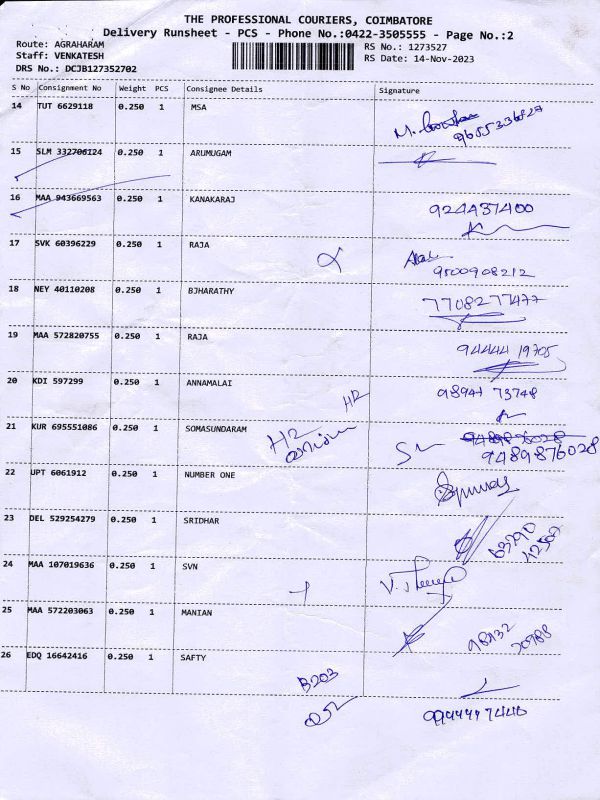 THE PROFESSIONAL COURIERS, COIMBATORE
Delivery Runsheet - PCS - Phone No.:0422-3505555 - Page No.:2
Route: AGRAHARAM
Staff: VENKATESH
DRS No.: DCJB127352702
RS No.: 1273527
RS Date: 14-Nov-2023
S No Consignment No Weight PCS Consignee Details Signature
14 TUT 6629118 0.250 1 MSA
9655336527
15 SLM 332706124 0.250 1 ARUMUGAM
16 MAA 943669563 0.250 1 KANAKARAJ
924437400
17 SVK 60396229 0.250 1 RAJA
9500908212
18 NEY 40110208 0.250 1 BJHARATHY
7708277477
19 MAA 572820755 0.250 1 RAJA
94444 19705
20 KDI 597299 0.250 1 ANNAMALAI
98941 73748
H2
21 KUR 695551086 0.250 1 SOMASUNDARAM
H2
9489876028
22 UPT 6061912 0.250 1 NUMBER ONE
23 DEL 529254279 0.250 1 SRIDHAR
63790
42507
24 MAA 107019636 0.250 1 SVN
25 MAA 572203063 0.250 1 MANIAN
26 EDQ 16642416 0.250 1 SAFTY
B203